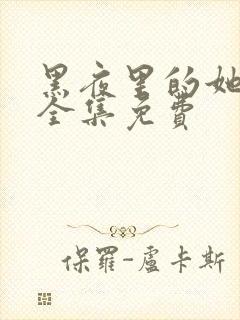 黑夜里的她
全集免费
保罗-盧卡斯